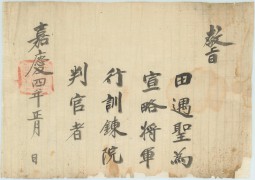 敎旨
田遇聖爲
宣略將軍
行訓鍊院
判官者
嘉慶四年正月 日